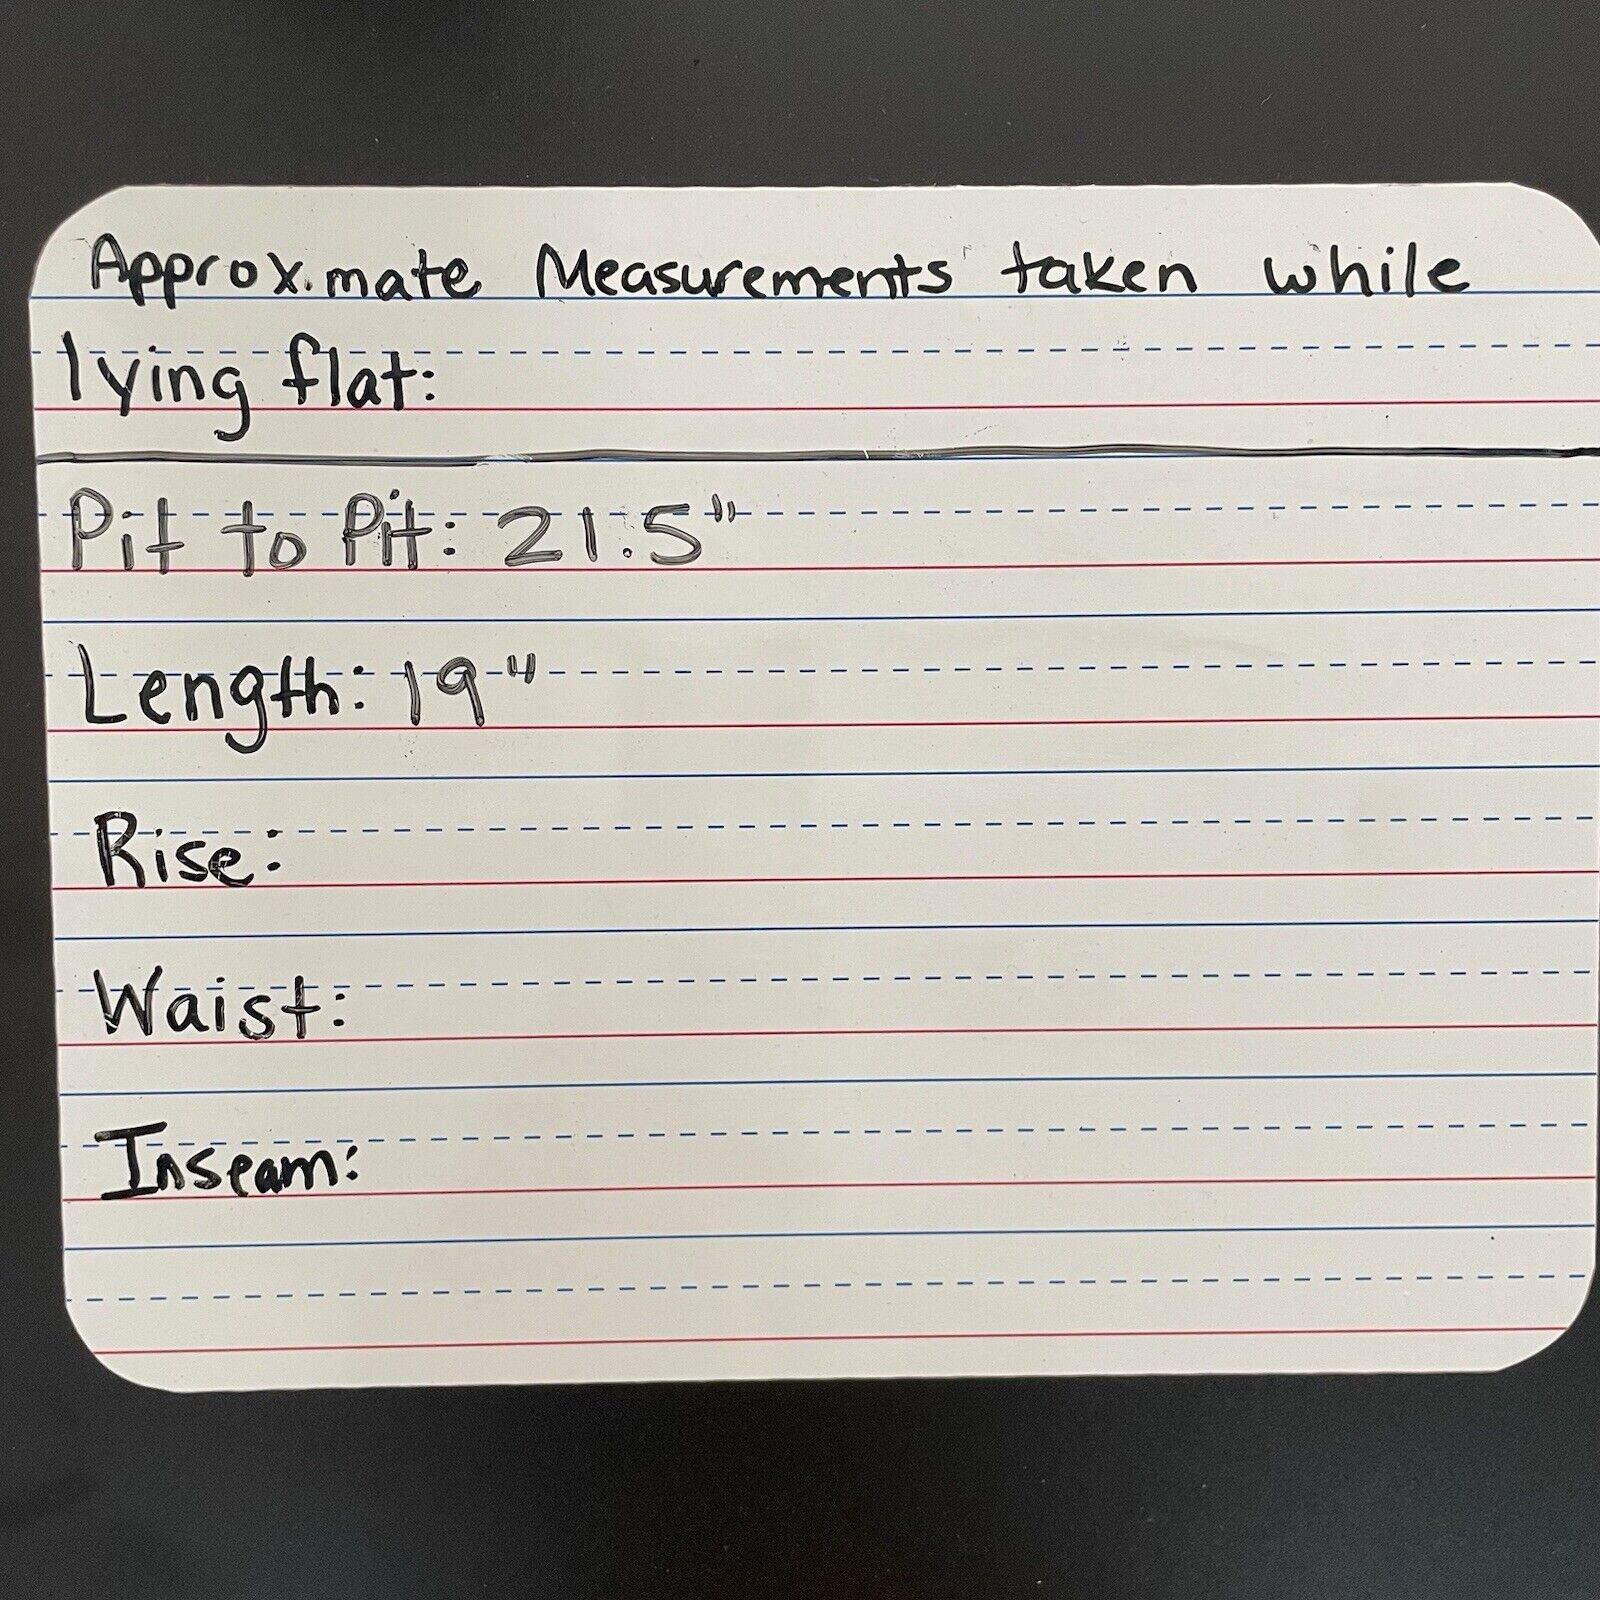 Approximate Measurements taken while
lying flat:
Pit to Pit: 21.5"
Length: 19"
Rise:
Waist:
Inseam: